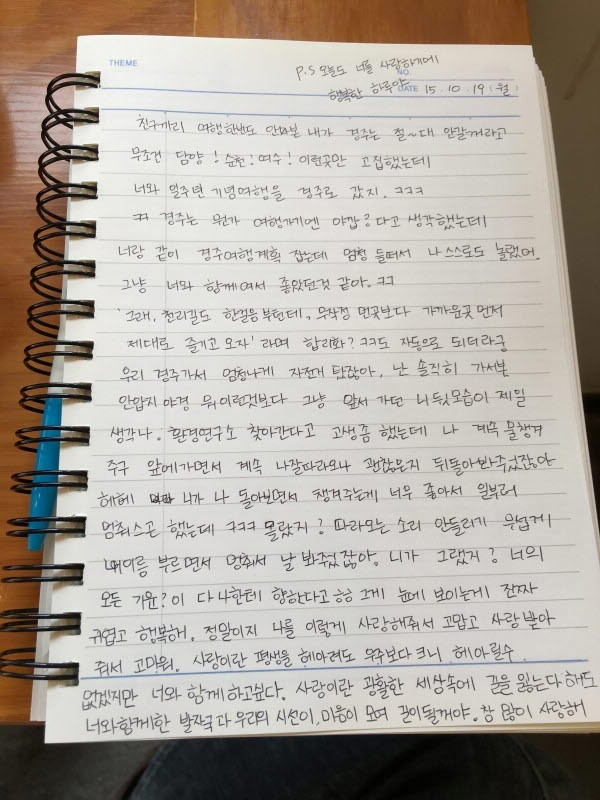 THEME
P.S 오늘도 너를 사랑하게에
NO.
행복한 하루야
DATE 15. 10. 19 (월)
친구끼리 여행한번도 안가본 내가 경주는 절~대 안갈꺼라고
무조건 담양! 순천! 여수! 이런곳만 고집했는데
너와 일주년 기념여행을 경주로 갔지. ㅋㅋㅋ
ㅋㅋ 경주는 뭔가 여행가기엔 아깝?다고 생각했는데
너랑 같이 경주여행계획 잡는데 엄청 들떠서 나 스스로도 놀랬어.
그냥 너와 함께여서 좋았던것 같아. ㅋㅋ
'그래, 천리길도 한걸음부턴데, 무작정 먼곳보다 가까운곳 먼저
제대로 즐기고 오자' 라며 합리화? ㅋㅋ도 자동으로 되더라궁
우리 경주가서 엄청나게 자전거 탔잖아, 난 솔직히 가서본
안압지 야경 뭐 이런것보다 그냥 앞서 가던 니 뒷모습이 제일
생각나. 환경연구소 찾아간다고 고생좀 했는데 나 계속 물챙겨
주구 앞에가면서 계속 나잘따라오나 괜찮은지 뒤돌아봐주었잖아
헤헤 니가 나 돌아보면서 챙겨주는게 너무 좋아서 일부러
멈춰스곤 했는데 ㅋㅋㅋ 몰랐지? 따라오는 소리 안들리기 무섭게
내이름 부르면서 멈춰서 날 봐줬잖아. 니가 그랬지? 너의
모든 기운?이 다 나한테 향한다고 ㅎㅎ 그게 눈에 보이는게 진짜
귀엽고 행복해. 정말이지 나를 이렇게 사랑해줘서 고맙고 사랑 받아
줘서 고마워. 사랑이란 평생을 헤아려도 우주보다 크니 헤아릴수
없겠지만 너와 함께 하고싶다. 사랑이란 광활한 세상속에 길을 잃는다 해도
너와함께한 발자국과 우리의 시선이, 마음이 모여 길이될꺼야. 참 많이 사랑해